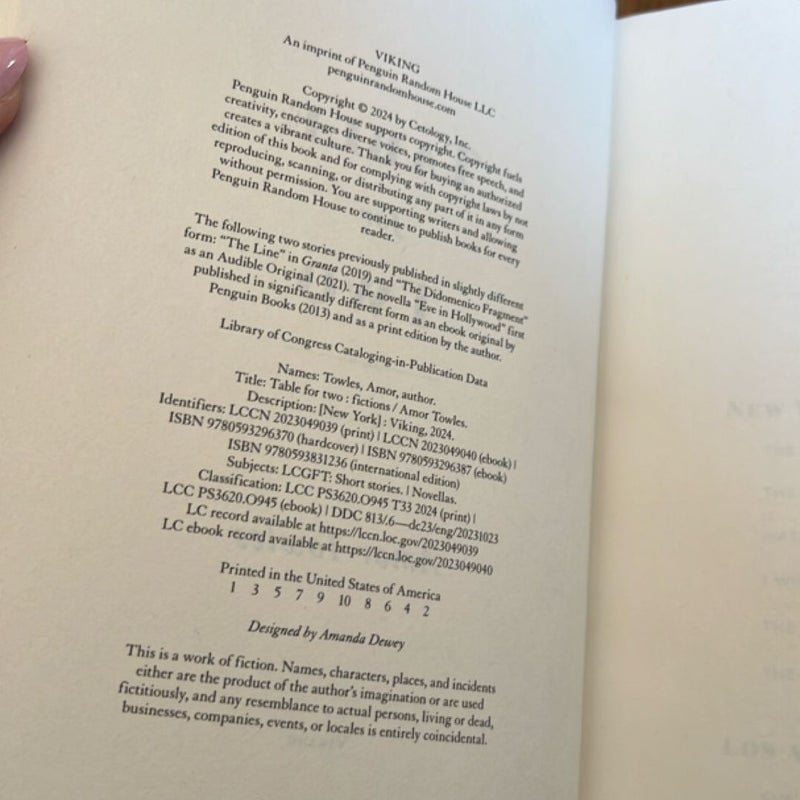 VIKING
An imprint of Penguin Random House LLC
penguinrandomhouse.com
Copyright © 2024 by Cetology, Inc.
Penguin Random House supports copyright. Copyright fuels
creativity, encourages diverse voices, promotes free speech, and
creates a vibrant culture. Thank you for buying an authorized
edition of this book and for complying with copyright laws by not
reproducing, scanning, or distributing any part of it in any form
without permission. You are supporting writers and allowing
Penguin Random House to continue to publish books for every
reader.
The following two stories previously published in slightly different
form: "The Line" in Granta (2019) and "The Didomenico Fragment"
as an Audible Original (2021). The novella "Eve in Hollywood" first
published in significantly different form as an ebook original by
Penguin Books (2013) and as a print edition by the author.
Library of Congress Cataloging-in-Publication Data
Names: Towles, Amor, author.
Title: Table for two : fictions / Amor Towles.
Description: [New York] : Viking, 2024.
Identifiers: LCCN 2023049039 (print) | LCCN 2023049040 (ebook) |
ISBN 9780593296370 (hardcover) | ISBN 9780593296387 (ebook)
ISBN 9780593831236 (international edition)
Subjects: LCGFT: Short stories. | Novellas.
Classification: LCC PS3620.O945 T33 2024 (print) |
LCC PS3620.O945 (ebook) | DDC 813/.6—dc23/eng/20231023
LC record available at https://lccn.loc.gov/2023049039
LC ebook record available at https://lccn.loc.gov/2023049040
Printed in the United States of America
1 3 5 7 9 10 8 6 4 2
Designed by Amanda Dewey
This is a work of fiction. Names, characters, places, and incidents
either are the product of the author's imagination or are used
fictitiously, and any resemblance to actual persons, living or dead,
businesses, companies, events, or locales is entirely coincidental.